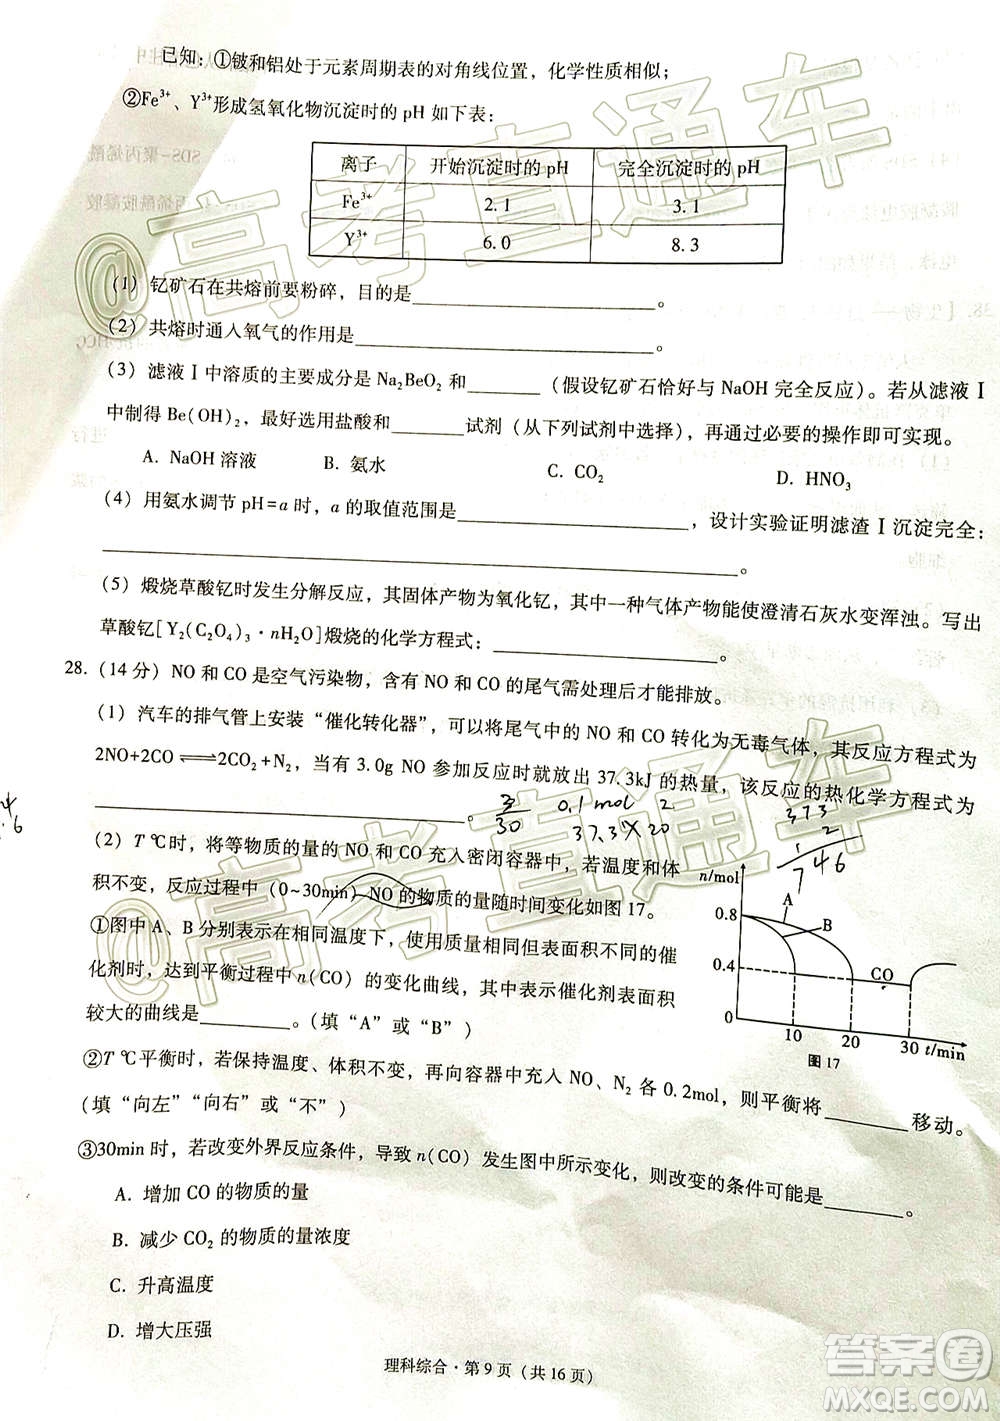 已知：①铍和铝处于元素周期表的对角线位置，化学性质相似；
②Fe³⁺、Y³⁺形成氢氧化物沉淀时的 pH 如下表：
离子 开始沉淀时的 pH 完全沉淀时的 pH
Fe³⁺ 2.1 3.1
Y³⁺ 6.0 8.3
（1）钇矿石在共熔前要粉碎，目的是__________。
（2）共熔时通入氧气的作用是__________。
（3）滤液Ⅰ中溶质的主要成分是 Na₂BeO₂ 和______（假设钇矿石恰好与 NaOH 完全反应）。若从滤液Ⅰ
中制得 Be(OH)₂，最好选用盐酸和______试剂（从下列试剂中选择），再通过必要的操作即可实现。
A. NaOH 溶液 B. 氨水 C. CO₂ D. HNO₃
（4）用氨水调节 pH=a 时，a 的取值范围是__________，设计实验证明滤渣Ⅰ沉淀完全：
__________。
（5）煅烧草酸钇时发生分解反应，其固体产物为氧化钇，其中一种气体产物能使澄清石灰水变浑浊。写出
草酸钇[Y₂(C₂O₄)₃·nH₂O]煅烧的化学方程式：__________。
28.（14 分）NO 和 CO 是空气污染物，含有 NO 和 CO 的尾气需处理后才能排放。
（1）汽车的排气管上安装“催化转化器”，可以将尾气中的 NO 和 CO 转化为无毒气体，其反应方程式为
2NO+2CO⇌2CO₂+N₂，当有 3.0g NO 参加反应时就放出 37.3kJ 的热量，该反应的热化学方程式为
__________。
3/30 0.1mol 2
37.3×20
373
2
746
（2）T℃时，将等物质的量的 NO 和 CO 充入密闭容器中，若温度和体
积不变，反应过程中（0~30min）NO 的物质的量随时间变化如图 17。
①图中 A、B 分别表示在相同温度下，使用质量相同但表面积不同的催
化剂时，达到平衡过程中 n(CO) 的变化曲线，其中表示催化剂表面积
较大的曲线是______。（填“A”或“B”）
n/mol
0.8
0.4
0
A
B
CO
10 20 30 t/min
图 17
②T℃平衡时，若保持温度、体积不变，再向容器中充入 NO、N₂ 各 0.2mol，则平衡将______移动。
（填“向左”“向右”或“不”）
③30min 时，若改变外界反应条件，导致 n(CO) 发生图中所示变化，则改变的条件可能是______。
A. 增加 CO 的物质的量
B. 减少 CO₂ 的物质的量浓度
C. 升高温度
D. 增大压强
理科综合·第 9 页（共 16 页）
@高考直通车
@高考直通车
答案圈
MXQE.COM